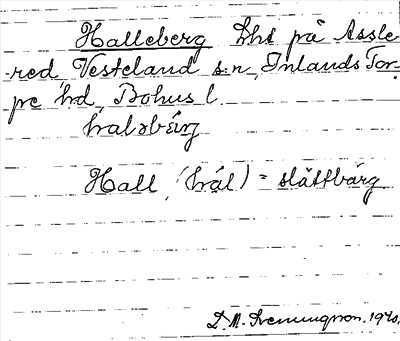 Halleberg Lht på Assle-
red Vesteland s:n, Inlands Tor-
pe hd, Bohus l.
halsbärg
Hall (hál) = slättbärg
D. M. 1940.